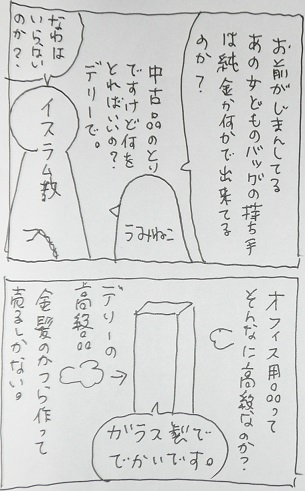 お前がじまんしてる
あの女どものバッグの持ち手
は純金か何かで出来てる
のか?
中古品のとり
ですけど何を
とればいいの?
デリーで。
うみねこ
なわは
いらない
のか?
イスラム教
オフィス用品って
そんなに高級なのか?
ガラス製で
でかいです。
デリーの
高級品
→
金髪のかつら作って
売るしかない。